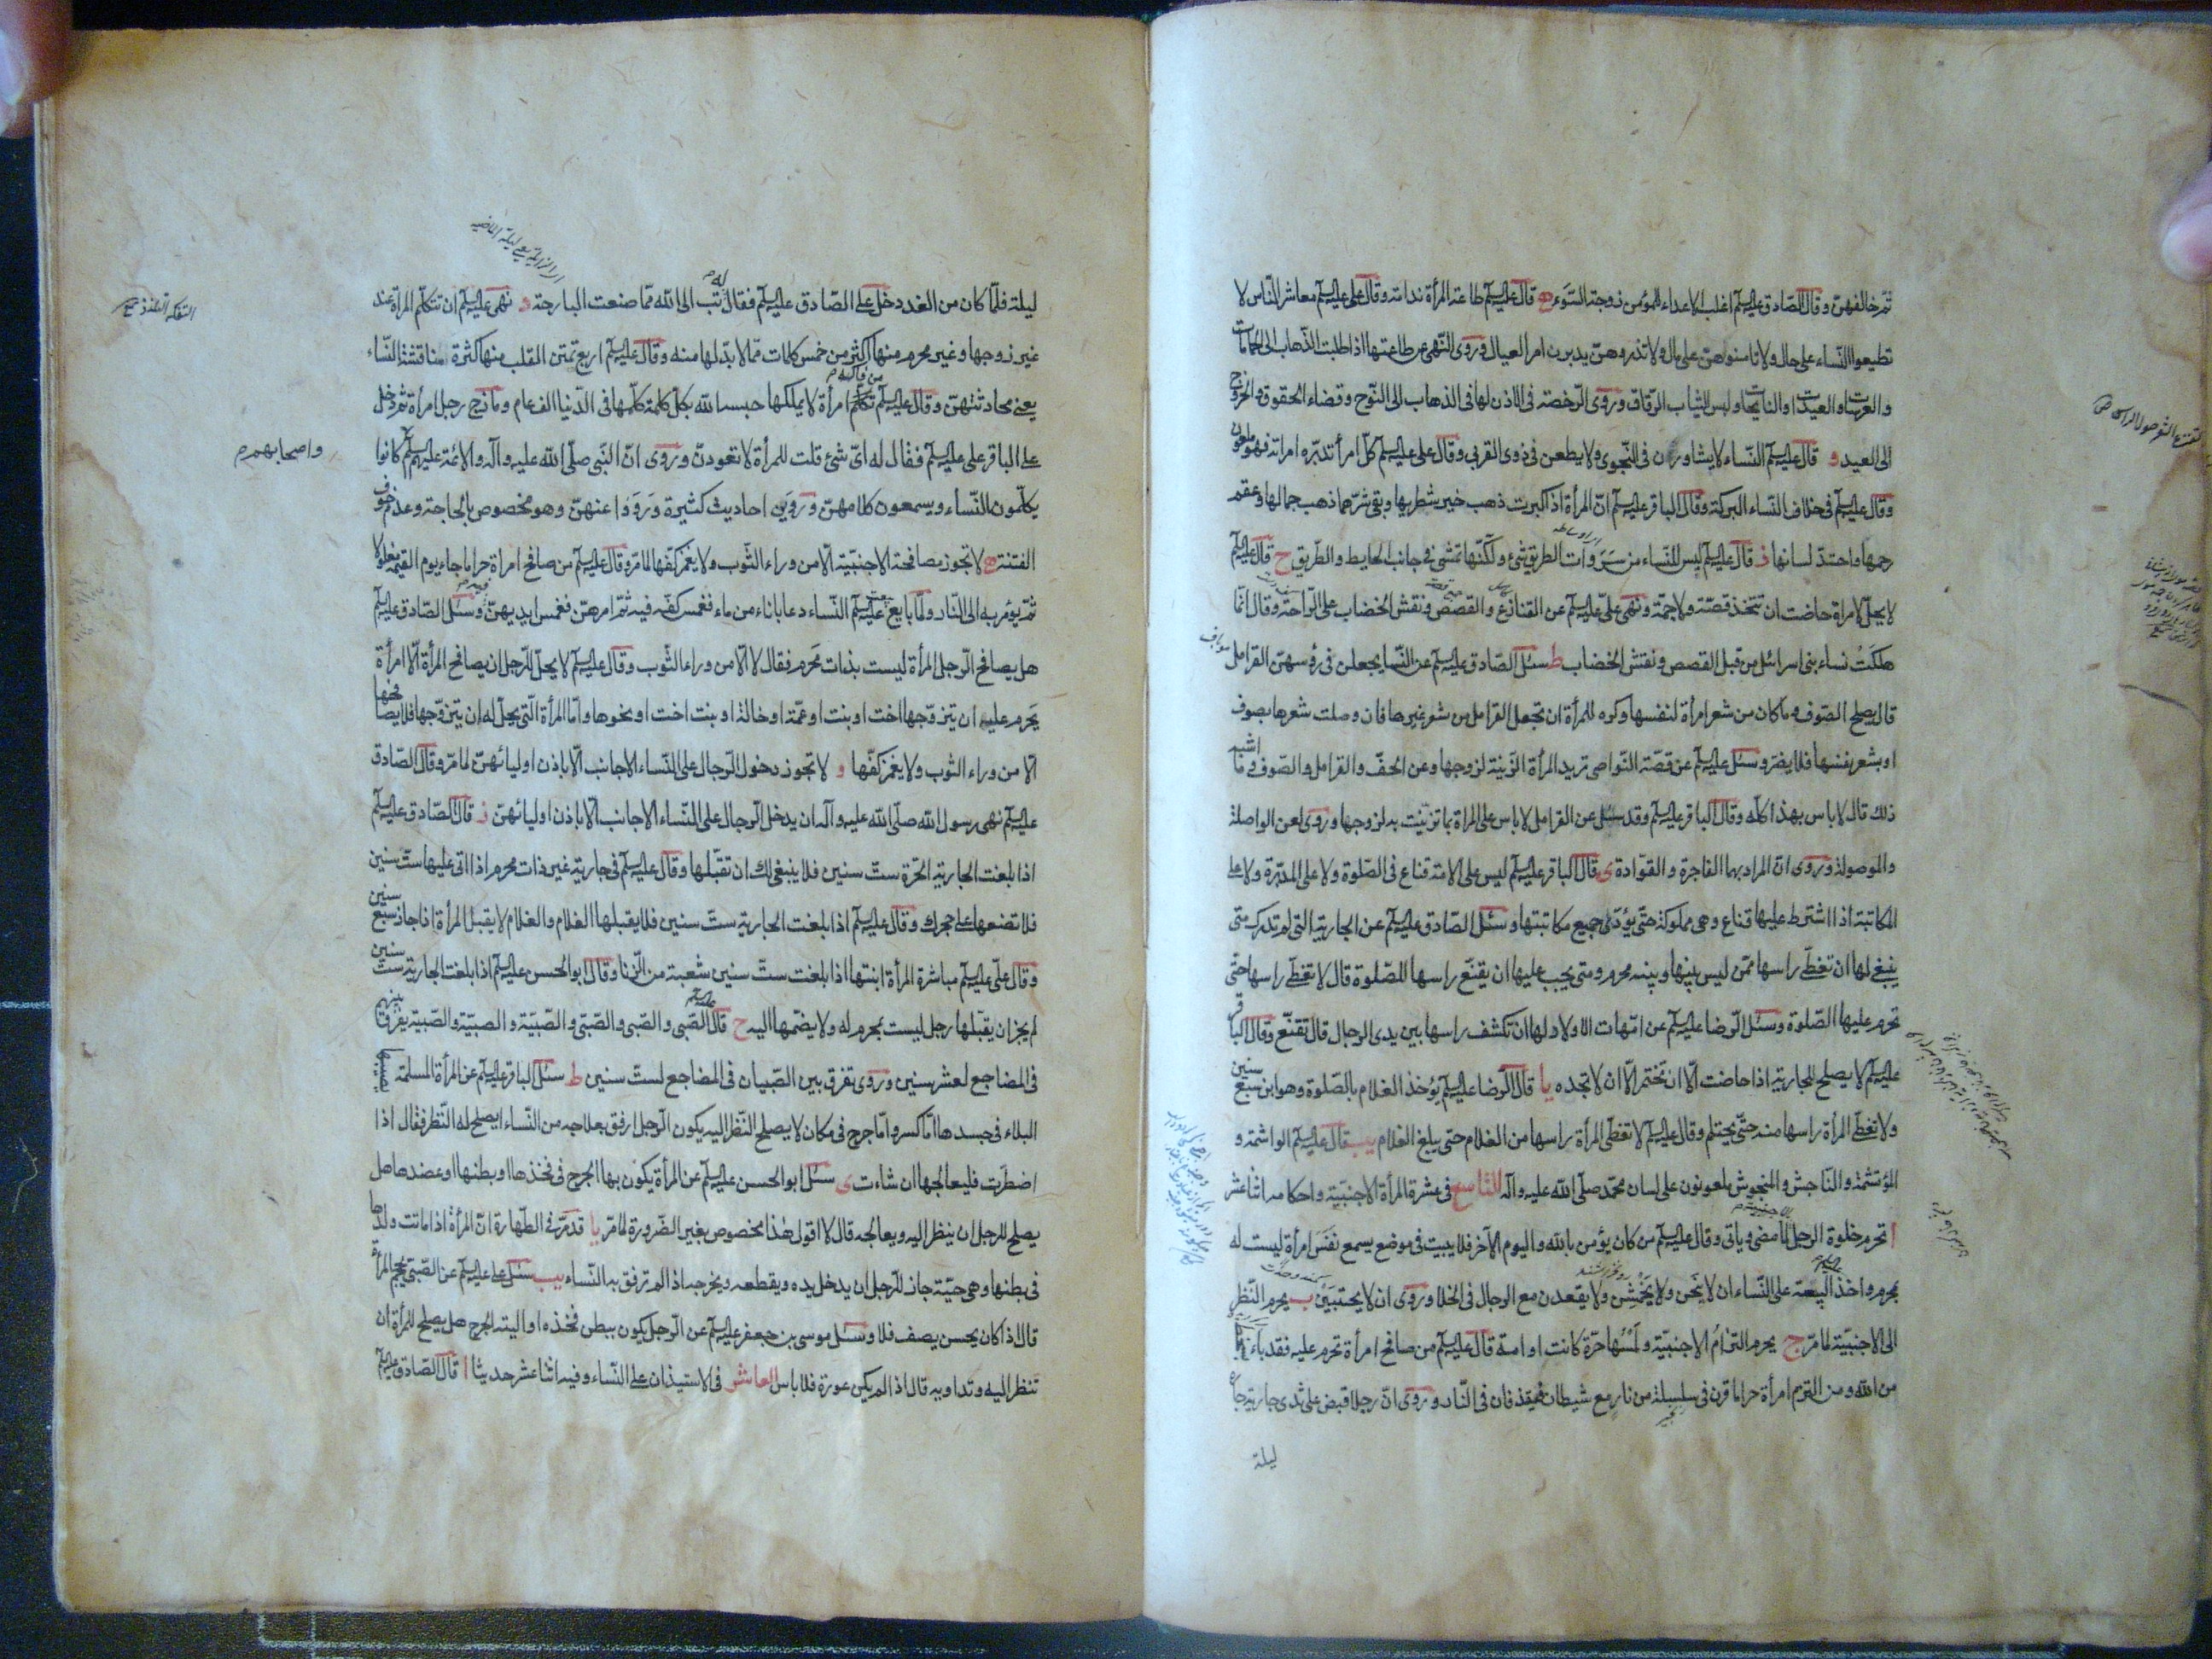 ثم خالفهن وقال الصادق عليه السلم اغلب الاعداء للمؤمن زوجة السوء ه قال عليه السلم طاعة المرأة ندامة وقال علي عليه السلم معاشر الناس لا
تطيعوا النساء على حال ولا تامنوهن على مال ولا تذروهن يدبرن امر العيال وروى النهى عن طاعتها اذا طلبت الذهاب الى الحمامات
والعرسات والعيدات والنايحات ولبس الثياب الرقاق وروى الرخصة فى الاذن لها فى الذهاب الى النوح وقضاء الحقوق والخروج
الى العيد و قال عليه السلم النساء لا يشاورن فى النجوى ولا يطعن فى ذوى القربى وقال على عليه السلم كل امرأ تدبره امراته فهو ملعون
وقال عليه السلم فى خلاف النساء البركة وقال الباقر عليه السلم ان المرأة اذا كبرت ذهب خير شطريها وبقى شرهما ذهب جمالها وعقم
رحمها واحتد لسانها ز قال عليه السلم ليس للنساء من سروات الطريق شئ ولكنها تمشى فى جانب الحايط والطريق ح قال عليه السلم
لا يحل لامراة حاضت ان تتخذ قصة ولا جمة ونهى على عليه السلم عن القنازع والقصص ونقش الخضاب على الراحة وقال انما
هلكت نساء بنى اسرائل من قبل القصص ونقش الخضاب ط سئل الصادق عليه السلم عن النسا يجعلن فى رؤسهن القرامل
قال يصلح الصوف وما كان من شعر امرأة لنفسها وكره للمرأة ان تجعل القرامل من شعر غيرها فان وصلت شعرها بصوف
او بشعر نفسها فلا يضر وسئل عليه السلم عن قصة النواصى تريد المرأة الزينة لزوجها وعن الحف والقرامل والصوف وما اشبه
ذلك قال لا باس بهذا كله وقال الباقر عليه السلم وقد سئل عن القرامل لا باس على المراة بما تزينت به لزوجها وروى لعن الواصلة
والموصولة وروى ان المراد بهما الفاجرة والقوادة ى قال الباقر عليه السلم ليس على الامة قناع فى الصلوة ولا على المدبرة ولا على
المكاتبة اذا اشترط عليها قناع وهى مملوكة حتى يؤدى جميع مكاتبتها وسئل الصادق عليه السلم عن الجارية التى لم تدرك متى
ينبغى لها ان تغطى راسها ممن ليس بينها وبينه محرم ومتى يجب عليها ان يقنع راسها للصلوة قال لا تغطى راسها حتى
تحرم عليها الصلوة وسئل الرضا عليه السلم عن امهات الاولاد لها ان تكشف راسها بين يدى الرجال قال تقنع وقال الباقر
عليه السلم لا يصلح للجارية اذا حاضت الا ان تختمر الا ان لا تجده يا قال الرضا عليه السلم يؤخذ الغلام بالصلوة وهو ابن سبع سنين
ولا تغطى المرأة راسها منه حتى يحتلم وقال عليه السلم لا تغطى المرأة راسها من الغلام حتى يبلغ الغلام يب قال عليه السلم الواشمة و
المؤتشمة والناجش والمنجوش ملعونون على لسان محمد صلى الله عليه وآله التاسع فى عشرة المرأة الاجنبية واحكامه اثنا عشر
ا تحرم خلوة الرجل بالاجنبية لما مضى وياتى وقال عليه السلم من كان يؤمن بالله واليوم الآخر فلا يبيت فى موضع يسمع نفس امرأة ليست له
بمحرم واخذ البيعة على النساء ان لا ينحن ولا يخمشن ولا يقعدن مع الرجال فى الخلا وروى ان لا يحتبين ب يحرم النظر
الى الاجنبية لما مر ج يحرم التزام الاجنبية ولمسها حرة كانت او امة قال عليه السلم من صافح امرأة تحرم عليه فقد باء
من الله ومن التزم امرأة حراما قرن فى سلسلة من نار مع شيطان فيقذفان فى النار وروى ان رجلا قبض على ثدى جارية جاره
ليلة
ليلة فلما كان من الغد دخل على الصادق عليه السلم فقال له تب الى الله مما صنعت البارحة د نهى عليه السلم ان تتكلم المرأة عند
غير زوجها وغير محرم منها اكثر من خمس كلمات مما لا بد لها منه وقال عليه السلم اربع تمتن القلب منها كثرة مناقشة النساء
يعنى محادثتهن وقال عليه السلم من فاكه امرأة لا يملكها حبسه الله بكل كلمة كلمها فى الدنيا الف عام ومازح رجل امرأة ثم دخل
على الباقر على عليه السلم فقال له اى شئ قلت للمرأة لا تعودن وروى ان النبى صلى الله عليه وآله والائمة عليهم السلم كانوا
واصحابهم
يكلمون النساء ويسمعون كلامهن وروين احاديث كثيرة ورووا عنهن وهو مخصوص بالحاجة وعدم خوف
الفتنة ه لا تجوز مصافحة الاجنبية الا من وراء الثوب ولا يغمز كفها لما مر وقال عليه السلم من صافح امراة حراما جاء يوم القيمة مغلولا
ثم يؤمر به الى النار ولما بايع عليه السلم النساء دعا باناء من ماء فغمس كفه فيه ثم امرهن فغمس ايديهن وسئل الصادق عليه السلم
هل يصافح الرجل المرأة ليست بذات محرم فقال لا الا من وراء الثوب وقال عليه السلم لا يحل للرجل ان يصافح المرأة الا امرأة
يحرم عليه ان يتزوجها اخت او بنت او عمة او خالة او بنت اخت او نحوها واما المرأة التى يحل له ان يتزوجها فلا يصافحها
الا من وراء الثوب ولا يغمز كفها و لا تجوز دخول الرجال على النساء الاجانب الا باذن اوليائهن لما مر وقال الصادق
عليه السلم نهى رسول الله صلى الله عليه وآله ان يدخل الرجال على النساء الاجانب الا باذن اوليائهن ز قال الصادق عليه السلم
اذا بلغت الجارية الحرة ست سنين فلا ينبغى لك ان تقبلها وقال عليه السلم فى جارية غير ذات محرم اذا اتى عليها ست سنين
فلا تضعها على حجرك وقال عليه السلم اذا بلغت الجارية ست سنين فلا يقبلها الغلام والغلام لا يقبل المرأة اذا جاز سبع سنين
وقال على عليه السلم مباشرة المرأة ابنتها اذا بلغت ست سنين شعبة من الزنا وقال ابو الحسن عليه السلم اذا بلغت الجارية ست سنين
لم يجز ان يقبلها رجل ليست بمحرم له ولا يضمها اليه ح قال عليه السلم الصبى والصبى والصبى والصبية والصبية والصبية يفرق بينهم
فى المضاجع لعشر سنين وروى تفرق بين الصبيان فى المضاجع لست سنين ط سئل الباقر عليه السلم عن المرأة المسلمة يصيبها
البلاء فى جسدها اما كسر واما جرح فى مكان لا يصلح النظر اليه يكون الرجل ارفق بعلاجه من النساء ايصلح له النظر فقال اذا
اضطرت فليعالجها ان شاءت ى سئل ابو الحسن عليه السلم عن المرأة يكون بها الجرح فى فخذها او بطنها او عضدها هل
يصلح للرجل ان ينظر اليه ويعالجه قال لا اقول هذا مخصوص بغير الضرورة لما مر يا قد مر فى الطهارة ان المرأة اذا ماتت ولدها
فى بطنها وهى حية جاز للرجل ان يدخل يده ويقطعه ويخرجه اذا لم ترفق به النساء يب سئل على عليه السلم عن الصبى يحجم المرأة
قال اذا كان يحسن يصف فلا وسئل موسى بن جعفر عليه السلم عن الرجل يكون ببطن فخذه او اليته الجرح هل يصلح للمرأة ان
تنظر اليه وتداويه قال اذا لم يكن عورة فلا باس العاشر فى الاستيذان على النساء وفيه اثنا عشر حديثا ا قال الصادق عليه السلم